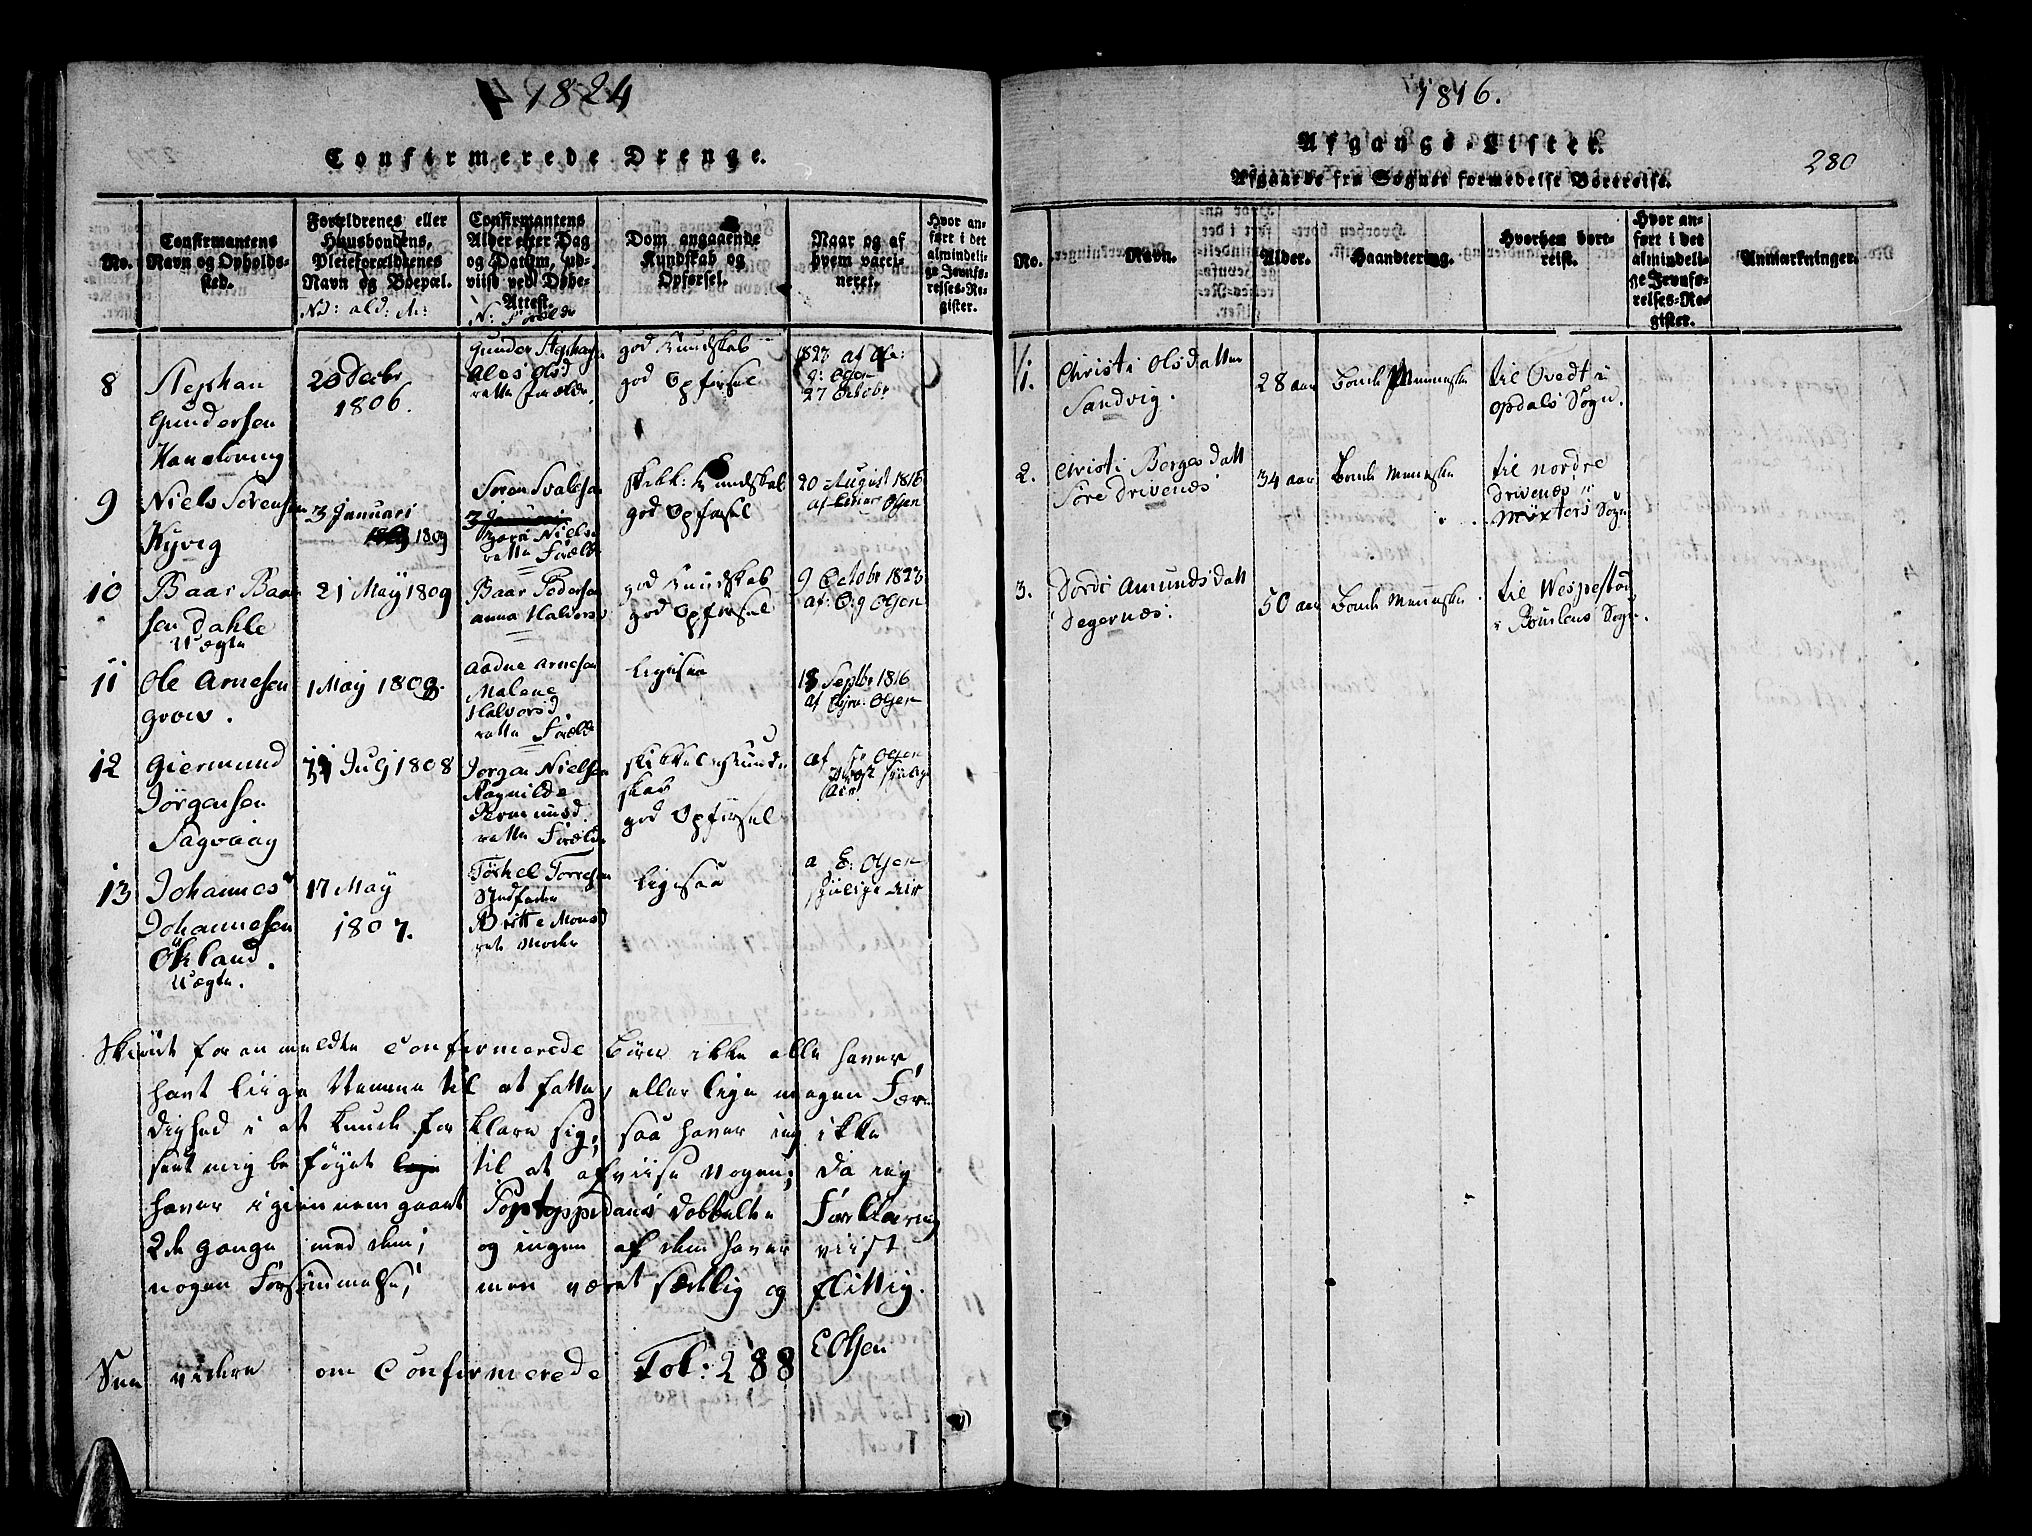 1824
Confirmerede Drenge.
No.
Confirmantens
Navn og Opholds-
sted.
Forældrenes eller
Huusbondens,
Pleieforældrenes
Navn og Boepæl.
Confirmantens
Alder efter Dag
og Datum, ud-
viist ved Døbe-
Attest.
Dom angaaende
Kundskab og
Opførsel.
Naar og af
hvem vacci-
neret.
Hvor an-
ført i det
almindeli-
ge Jevnfø-
relses-Re-
gister.
8
Stephan
Gundersen
20 Decbr
1806.
Gunder Stephans
Olsd
rette Forældr.
god Kundskab
god Opførsel
1823 af Ole:
G: Olsen
27 Octobr
9
Niels Sørensen
Kyvig
3 Januari
1809
Søren Svalesen
Niels
rette Foræld
skikk: Kundskab
god Opførsel
20 August 1816
af Olsen
10
Baar Baar
sen Dahle
Vægte
21 May 1809
Baar Pedersen
anna Halvors
god Kundskab
god Opførsel
9 Octobr 1823
af: Olsen
11
Ole Arnesen
Grov.
1 May 1808.
Aadne Arnesen
Malene
Halvorsd.
rette Foræld
ligesaa
18 Septbr 1816
af Olsen
12
Giermund
Jørgensen
Sagvaag
31 Julj 1808
Jørgen Nielsen
Ragnilde
rette Foræld
skikkel: Kund-
skab
god Opførsel
af Olsen
13
Johannes
Johannesen
Økland.
Vægte.
17 May
1807.
Torkel Torresen
Stedfader
Britte Monsd
ret Moder
ligesaa
a E: Olsen
Skiønt for anmeldte Confirmerede Børn ikke alle haver,
havt liige Nemme til at fatte, eller lige megen Fær-
dighed i at kunde forklare sig, saa haver ieg ikke
seet mig beføyet til at afviise Nogen; da ieg
haver igiennemgaaet Pontoppidans dobbelte Forklaring
2de Gange med dem; og ingen af dem haver viist
nogen Forsømmelse, men været sædelig og flittig.
E Olsen
See videre om Confirmerede Fol: 288
1816.
Afgangs-Lister.
280
Afgaaede fra Sognet formedelst Bortreise.
No.
Navn.
Alder.
Haandtering.
Hvorhen bort-
reist.
Hvor an-
ført i det
almindeli-
ge Jevnfø-
relses-Re-
gister.
Anmærkninger.
1.
Christi Olsdatter
Sandvig.
28 aar
Bonde Menneske
til Ovedt i
Opdals Sogn.
2.
Christi Børgesdatt
Søre Drivenæs
34 aar
Bonde Menneske
til Nordre
Drivenæs
Møxters Sogn
3.
Dorde Amundsdatt
Degernæs.
50 aar
Bonde Menneske
til Wespestad
i Bømlens Sogn.